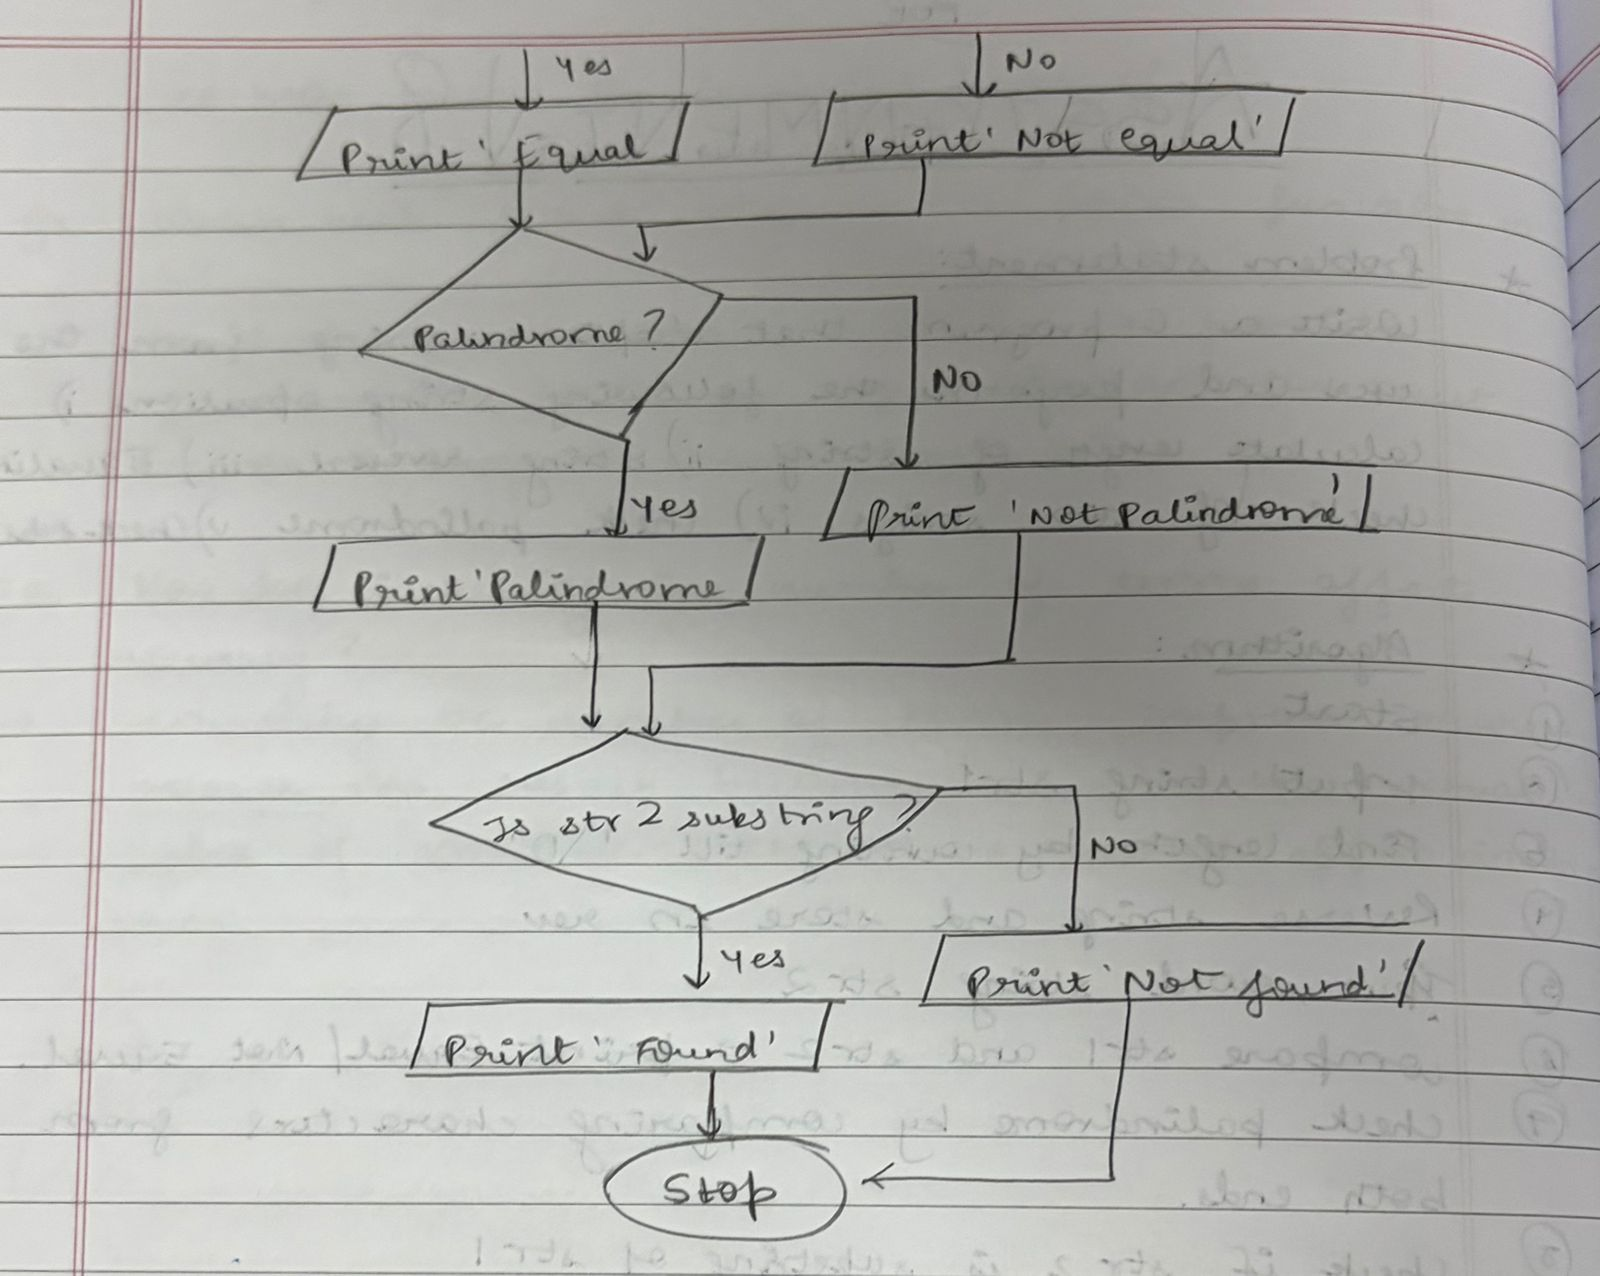 Yes
No
Print 'Equal
Print 'Not equal'
Palindrome ?
No
Yes
Print 'Not Palindrome'
Print 'Palindrome
Is str 2 substring ?
No
Yes
Print 'Not found'
Print 'Found'
Stop